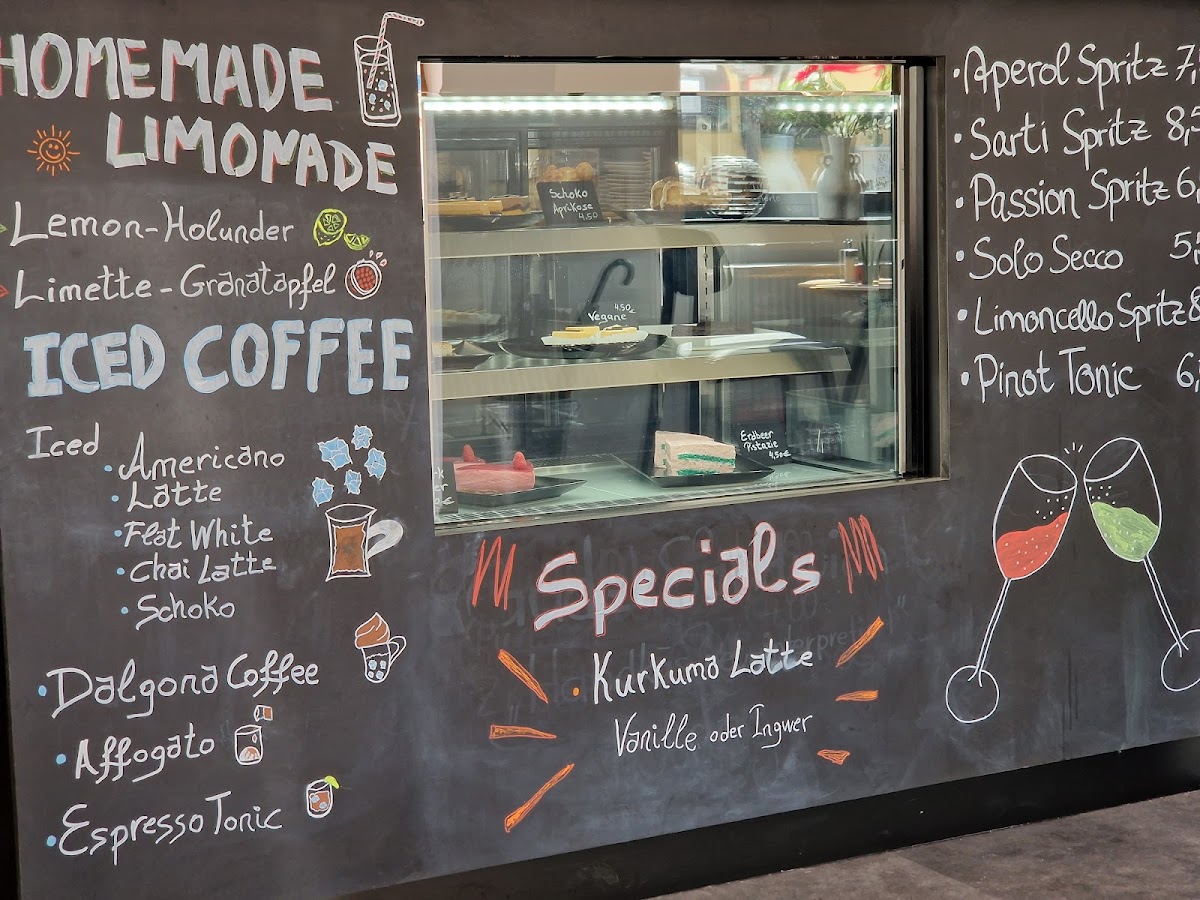 HOMEMADE
LIMONADE
Lemon-Holunder
Limette-Granatapfel
ICED COFFEE
Iced
Americano
Latte
Flat White
Chai Latte
Schoko
Dalgona Coffee
Affogato
Espresso Tonic
Schoko
Aprikose
4,50
4,50
Vegane
Erdbeer
Pistazie
4,50€
Specials
Kurkuma Latte
Vanille oder Ingwer
Aperol Spritz 7,
Sarti Spritz 8,
Passion Spritz 6,
Solo Secco 5,
Limoncello Spritz 8
Pinot Tonic 6,